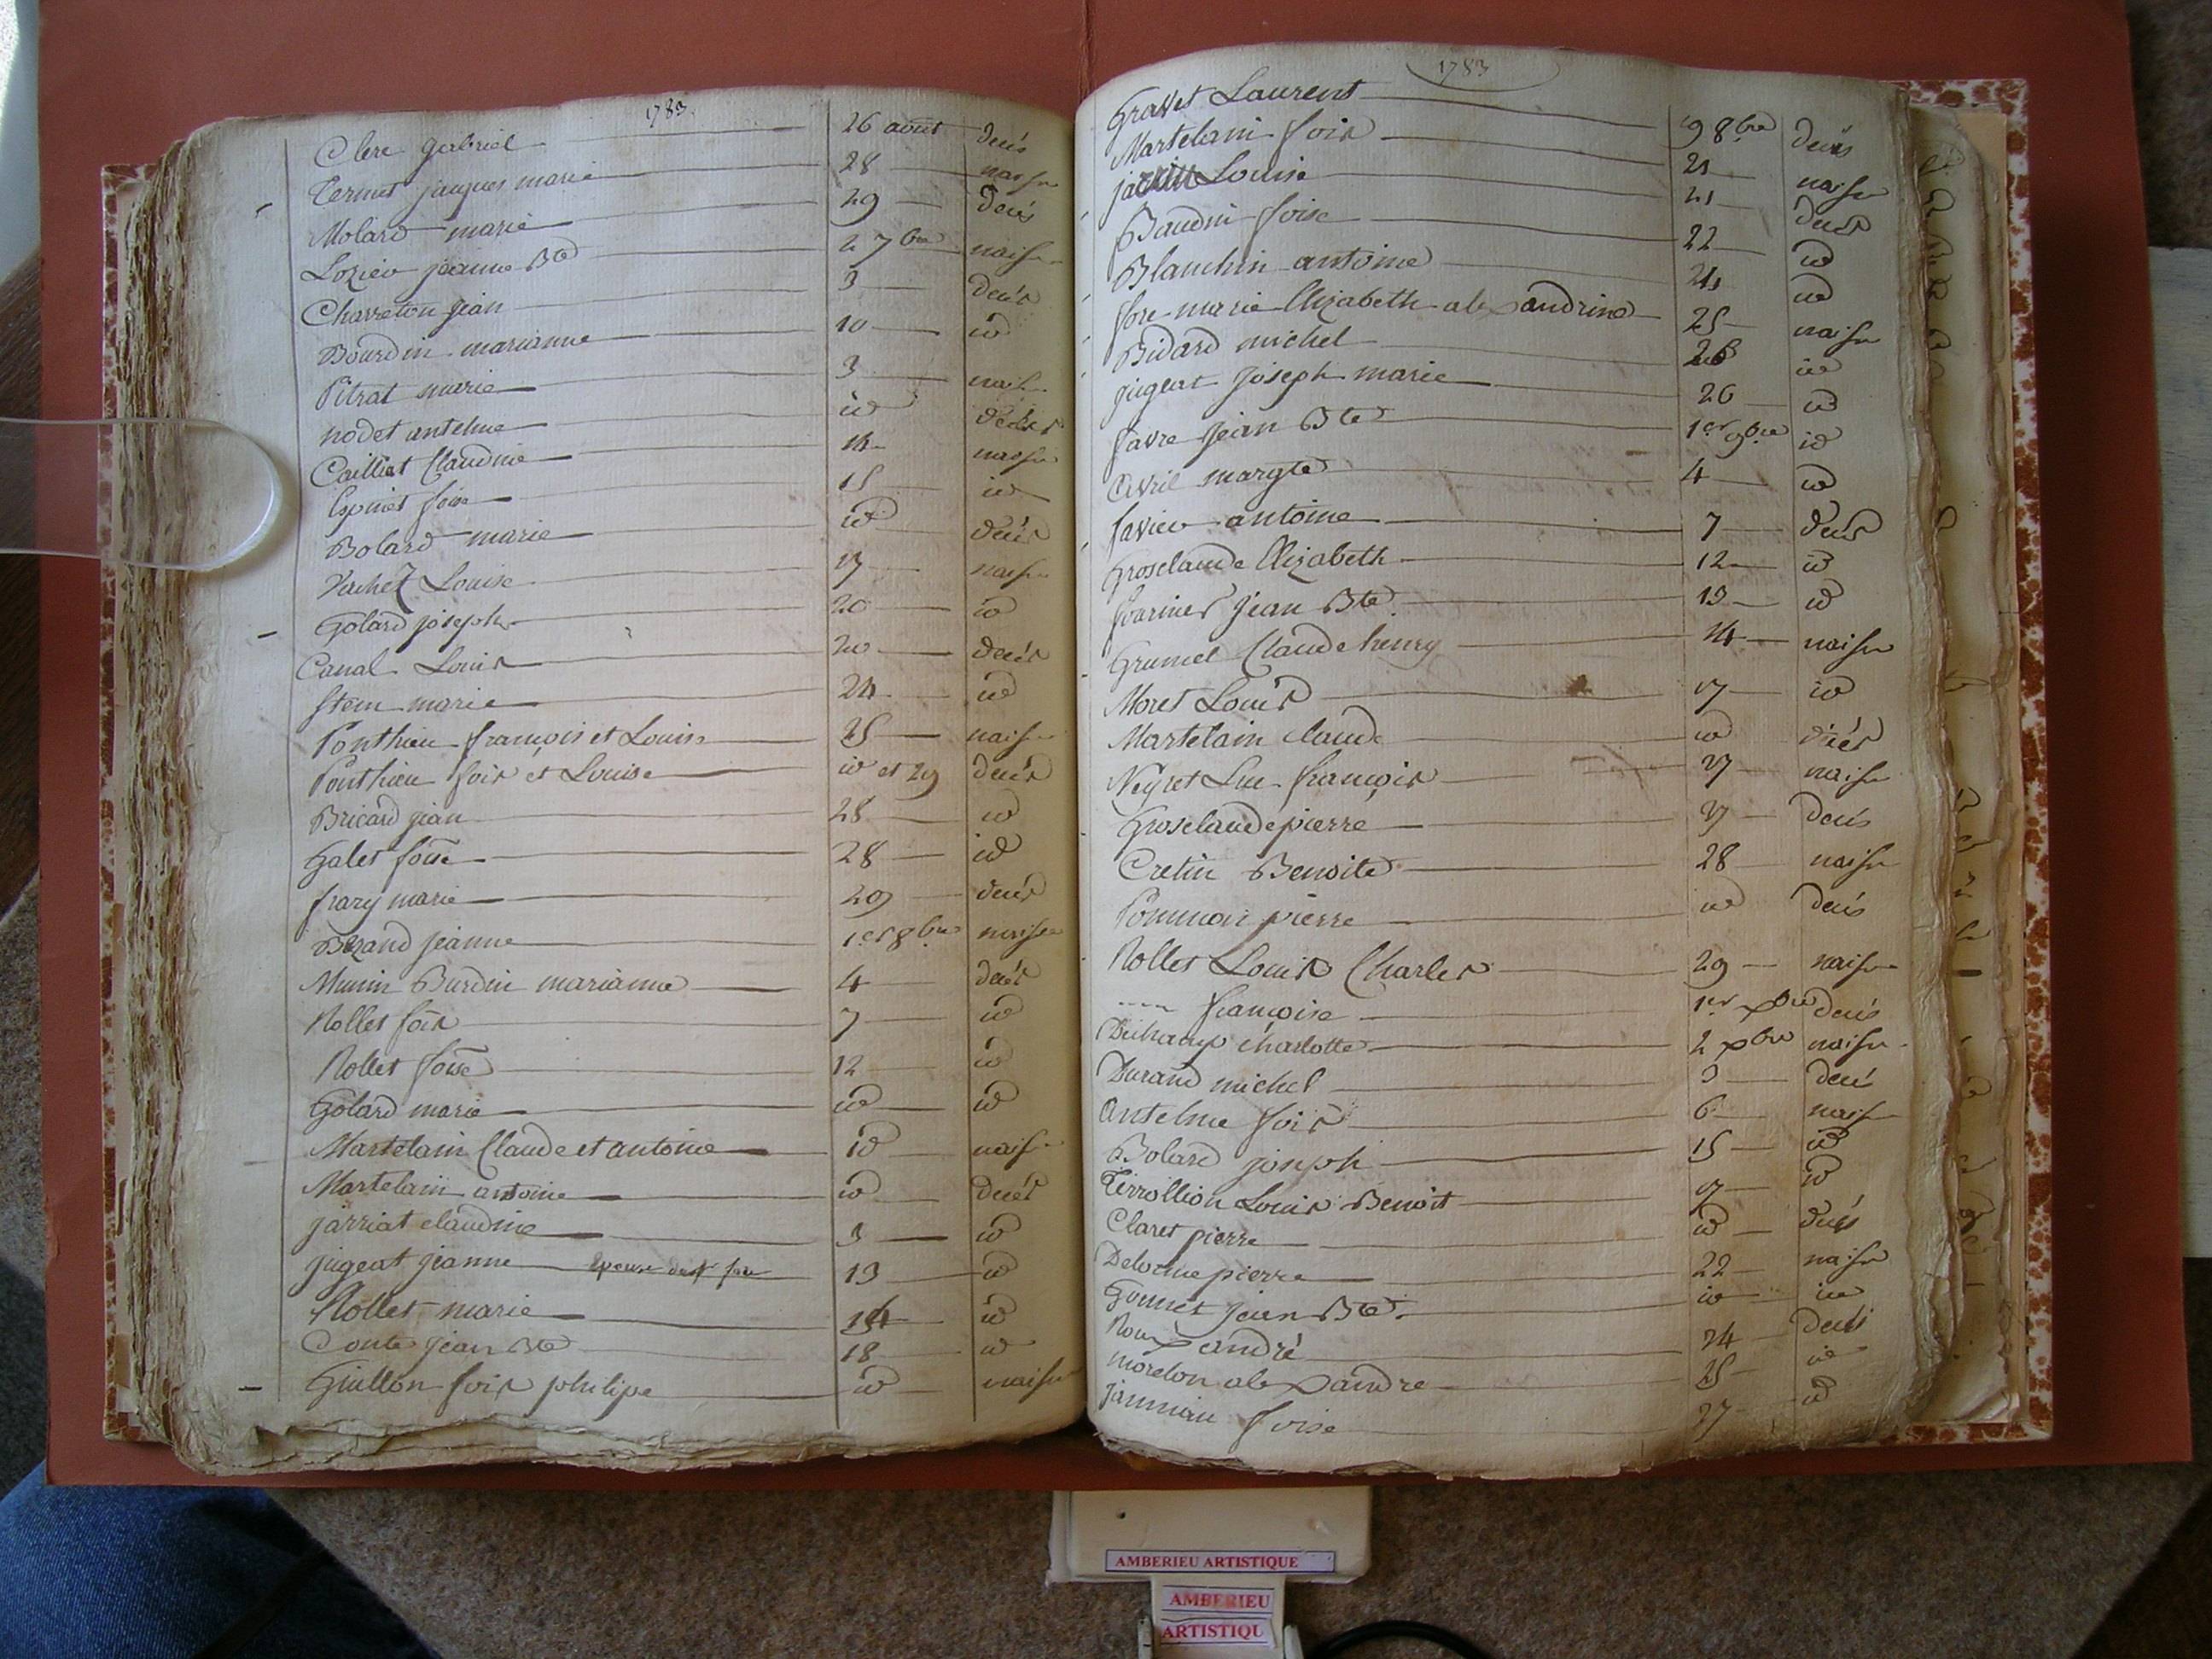 1783
Clerc gabriel 26 août decés
Ternet jacques marie 28 naisse
Molard marie 29 decés
Lozier jeanne Bte 2 7bre naisse
Charreton jean 3 decés
Bourdin marianne 10 id
Pitrat marie 3 naiss
nodet antelme id decés
Cailliat Claudine 14 naisse
Espinet foise 15 id
Bolard marie id decés
Vachez Louise 17 naisse
Golard joseph 20 id
Canal Louis 20 decés
Stem marie 24 id
Ponthieu françois et Louise 25 naisse
Ponthieu fois et Louise id et 29 decés
Bricard jean 28 id
Galet foise 28 id
frary marie 29 decés
Bezand jeanne 1er 8bre naisse
Munin Burdin marianne 4 decés
Rollet fois 7 id
Rollet foise 12 id
Golard marie id id
Martelain Claude et antoine id naisse
Martelain antoine id decés
jarriat claudine 3 id
jugeat jeanne Epouse de 13 id
Rollet marie 14 id
Conte jean Bte 18 id
Guillon fois philipe id naisse
1783
Gravet Laurent 19 8bre decés
Martelain fois 21 naisse
Louise 21 decés
Baudin foise 22 id
Blanchin antoine 24 id
fore marie Elizabeth alexandrine 25 naisse
Bidard michel 26 id
jugeat joseph marie 26 id
favre jean Bte 1er 9bre id
avril margte 4 id
favier antoine 7 decés
Groselaude Elizabeth 12 id
fournier jean Bte 13 id
Grumel Claude henry 14 naisse
Moret Louis 17 id
Martelain claude id decés
Neyret Luc françois 27 naisse
Groselaude pierre 27 decés
Cretin Benoite 28 naisse
Pommar pierre id decés
Rollet Louis Charles 29 naisse
---- françoise 1er xbre decés
Duhamp charlotte 2 xbre naisse
Durand michel 3 decé
antelme fois 6 naisse
Bolard joseph 15 id
Terrollion Louis Benoit 17 id
Claret pierre id decés
Delorme pierre 22 naisse
Gonnet jean Bte id id
Roux andré 24 decés
morelon alexandre 25 id
janniau foise 27 id
AMBERIEU ARTISTIQUE
AMBERIEU
ARTISTIQU